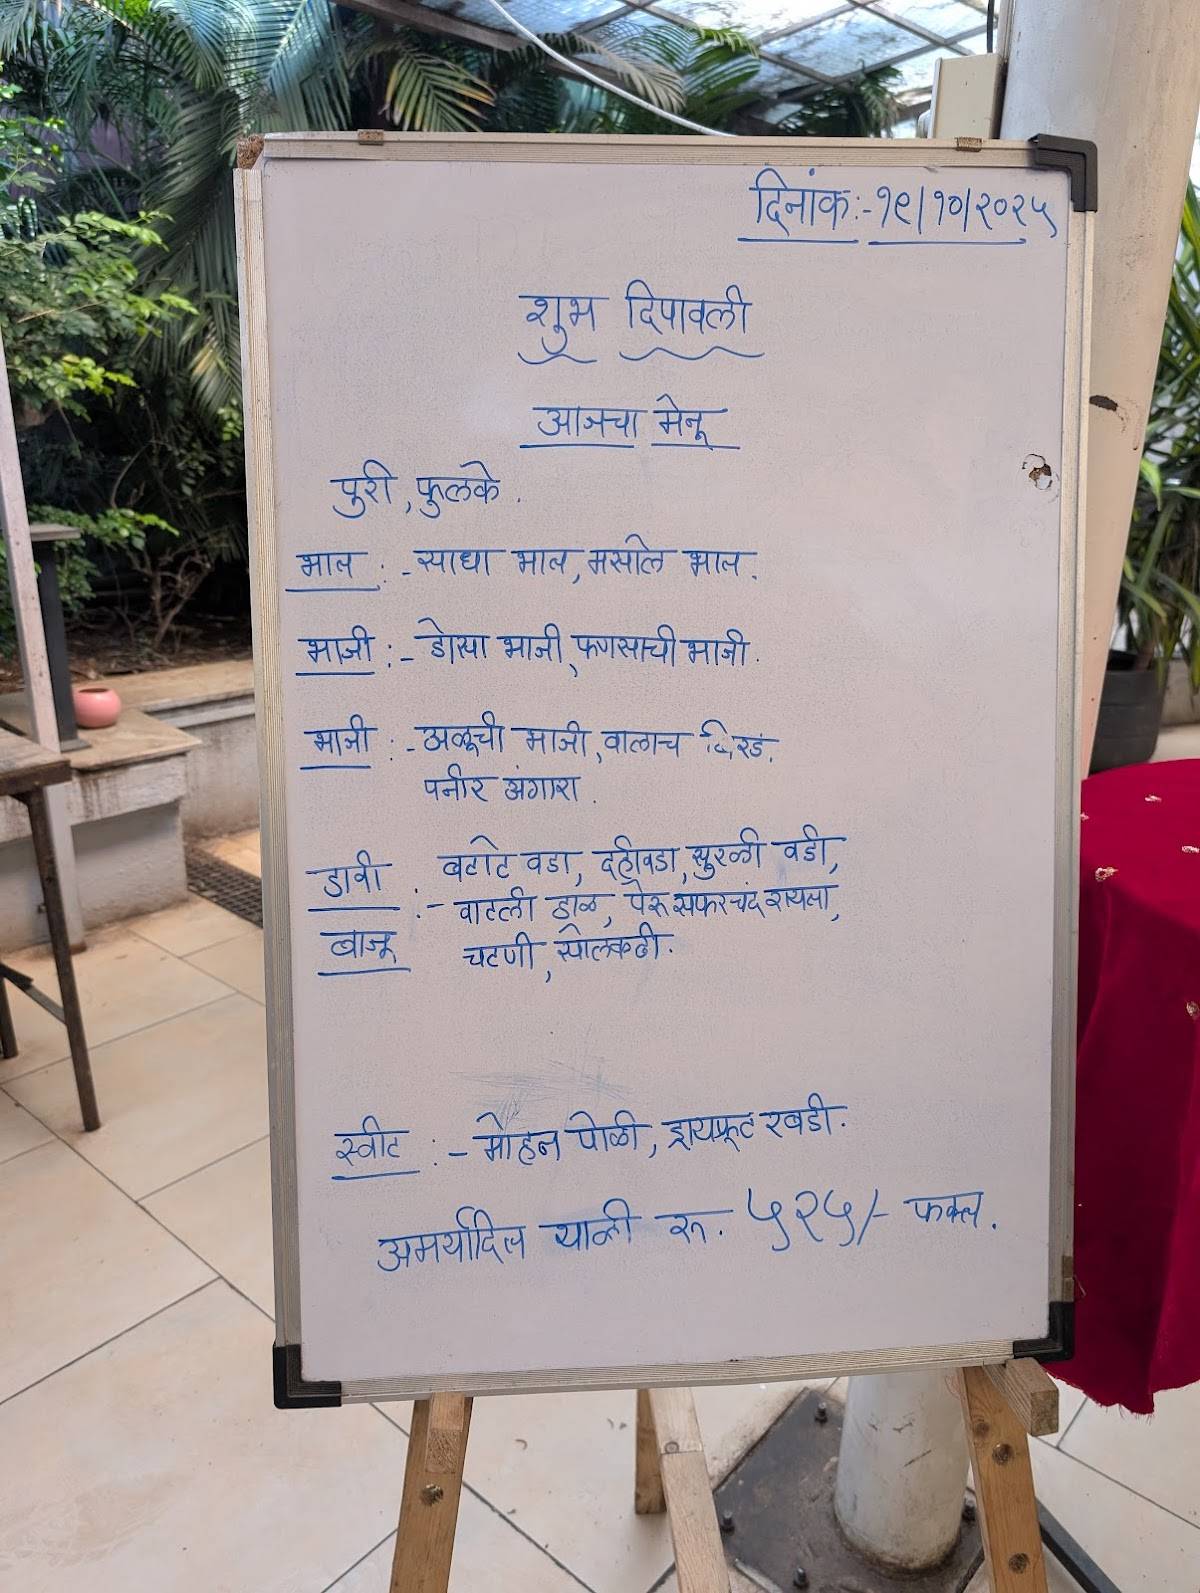 दिनांक:-१९/१०/२०२५
शुभ दिपावली
आजचा मेनू
पुरी, फुलके.
भात :- साधा भात, मसाले भात.
भाजी :- डोसा भाजी, फणसाची भाजी.
भाजी :- अळूची भाजी, वालाच बिरडं.
पनीर अंगारा.
डावी बाजू :- बटाटे वडा, दहीवडा, सुरळी वडी,
वाटली डाळ, पेरू सफरचंद रायता,
चटणी, सोलकढी.
स्वीट :- मोहन पोळी, ड्रायफ्रूट रबडी.
अमर्यादित थाळी रू. ५२५/- फक्त.